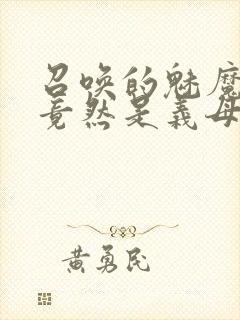 召唤的魅魔
竟然是义母
黄勇民